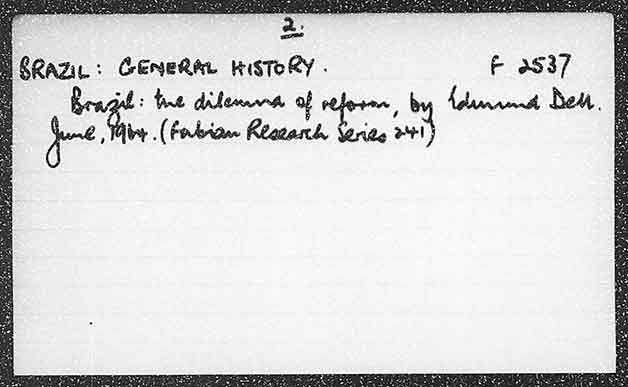 2.
BRAZIL: GENERAL HISTORY. F 2537
Brazil: the dilemma of reform, by Edmund Dell.
June, 1964. (Fabian Research Series 241)